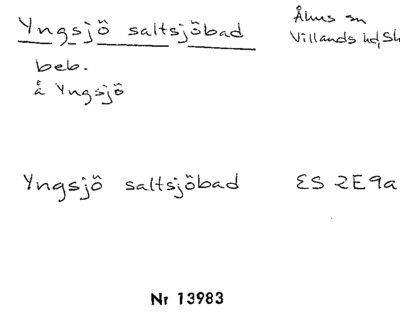 Yngsjö saltsjöbad
Åhus sn
Villands hd, Sk
beb.
å Yngsjö
Yngsjö saltsjöbad
ES 2E9a
Nr 13983